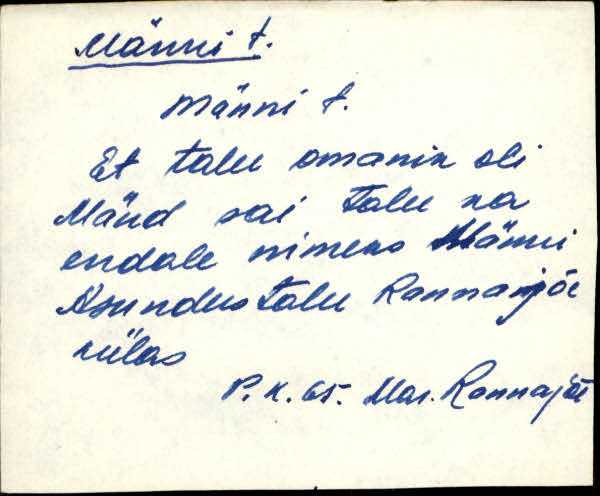 Männi t.
Männi t.
Et talu omanik oli
Mänd sai talu ka
endale nimeks Männi
Asundustalu Rannajõe
külas
P. K. 65. Mar. Rannajõe